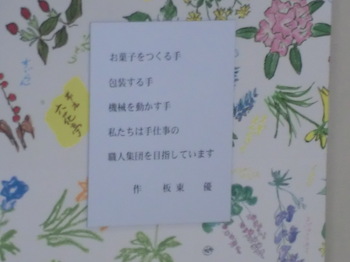 お菓子をつくる手
包装する手
機械を動かす手
私たちは手仕事の
職人集団を目指しています
作 板東 優
六花亭